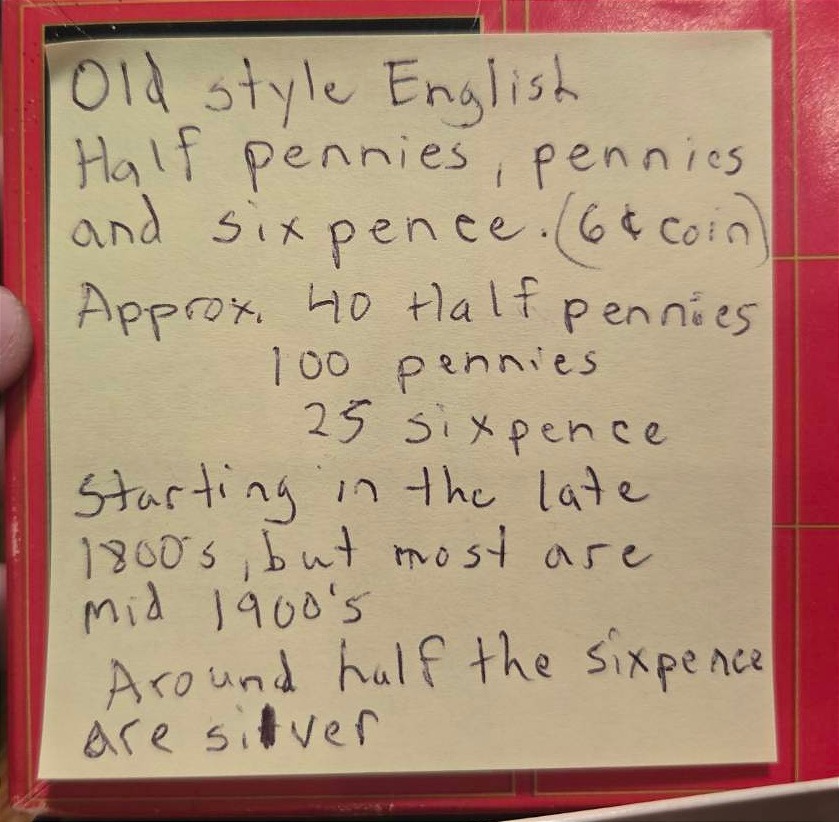 Old style English
Half pennies, pennies
and sixpence. (6¢ coin)
Approx. 40 Half pennies
100 pennies
25 sixpence
Starting in the late
1800's, but most are
mid 1900's
Around half the sixpence
are silver